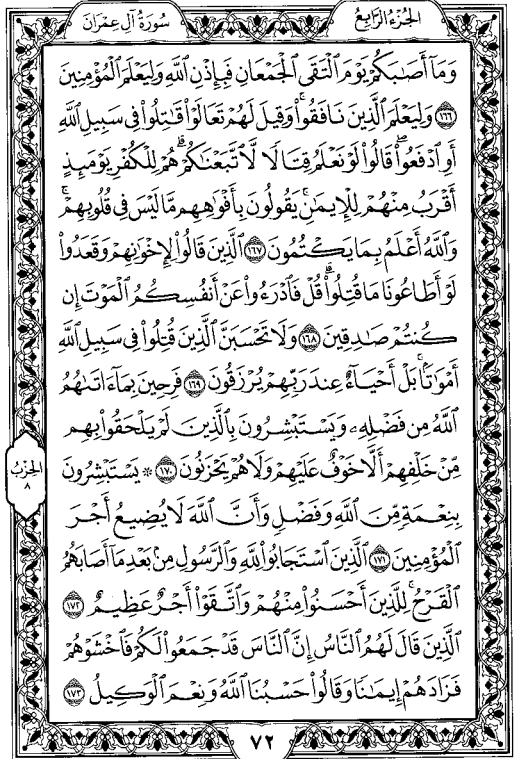 الجزء الرابع
سورة آل عمران
وَمَآ أَصَٰبَكُمۡ يَوۡمَ ٱلۡتَقَى ٱلۡجَمۡعَانِ فَبِإِذۡنِ ٱللَّهِ وَلِيَعۡلَمَ ٱلۡمُؤۡمِنِينَ
١٦٦ وَلِيَعۡلَمَ ٱلَّذِينَ نَافَقُواْۚ وَقِيلَ لَهُمۡ تَعَالَوۡاْ قَٰتِلُواْ فِي سَبِيلِ ٱللَّهِ
أَوِ ٱدۡفَعُواْۖ قَالُواْ لَوۡ نَعۡلَمُ قِتَالٗا لَّٱتَّبَعۡنَٰكُمۡۗ هُمۡ لِلۡكُفۡرِ يَوۡمَئِذٍ
أَقۡرَبُ مِنۡهُمۡ لِلۡإِيمَٰنِۚ يَقُولُونَ بِأَفۡوَٰهِهِم مَّا لَيۡسَ فِي قُلُوبِهِمۡۚ
وَٱللَّهُ أَعۡلَمُ بِمَا يَكۡتُمُونَ ١٦٧ ٱلَّذِينَ قَالُواْ لِإِخۡوَٰنِهِمۡ وَقَعَدُواْ
لَوۡ أَطَاعُونَا مَا قُتِلُواْۗ قُلۡ فَٱدۡرَءُواْ عَنۡ أَنفُسِكُمُ ٱلۡمَوۡتَ إِن
كُنتُمۡ صَٰدِقِينَ ١٦٨ وَلَا تَحۡسَبَنَّ ٱلَّذِينَ قُتِلُواْ فِي سَبِيلِ ٱللَّهِ
أَمۡوَٰتَۢاۚ بَلۡ أَحۡيَآءٌ عِندَ رَبِّهِمۡ يُرۡزَقُونَ ١٦٩ فَرِحِينَ بِمَآ ءَاتَىٰهُمُ
ٱللَّهُ مِن فَضۡلِهِۦ وَيَسۡتَبۡشِرُونَ بِٱلَّذِينَ لَمۡ يَلۡحَقُواْ بِهِم
مِّنۡ خَلۡفِهِمۡ أَلَّا خَوۡفٌ عَلَيۡهِمۡ وَلَا هُمۡ يَحۡزَنُونَ ١٧٠ ۞ يَسۡتَبۡشِرُونَ
بِنِعۡمَةٖ مِّنَ ٱللَّهِ وَفَضۡلٖ وَأَنَّ ٱللَّهَ لَا يُضِيعُ أَجۡرَ
ٱلۡمُؤۡمِنِينَ ١٧١ ٱلَّذِينَ ٱسۡتَجَابُواْ لِلَّهِ وَٱلرَّسُولِ مِنۢ بَعۡدِ مَآ أَصَابَهُمُ
ٱلۡقَرۡحُۚ لِلَّذِينَ أَحۡسَنُواْ مِنۡهُمۡ وَٱتَّقَوۡاْ أَجۡرٌ عَظِيمٌ ١٧٢
ٱلَّذِينَ قَالَ لَهُمُ ٱلنَّاسُ إِنَّ ٱلنَّاسَ قَدۡ جَمَعُواْ لَكُمۡ فَٱخۡشَوۡهُمۡ
فَزَادَهُمۡ إِيمَٰنٗا وَقَالُواْ حَسۡبُنَا ٱللَّهُ وَنِعۡمَ ٱلۡوَكِيلُ ١٧٣
الحزب
٨
٧٢